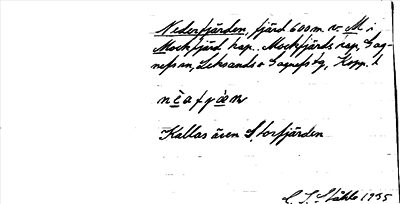 Nederfjärden, fjärd 600 m. v. M i
Mockfjärd kap., Mockfjärds kap, Gag-
nefs sn, Leksands o Gagnefs tg, Kopp. l.
Kallas även Storfjärden
C. I. Ståhle 1935